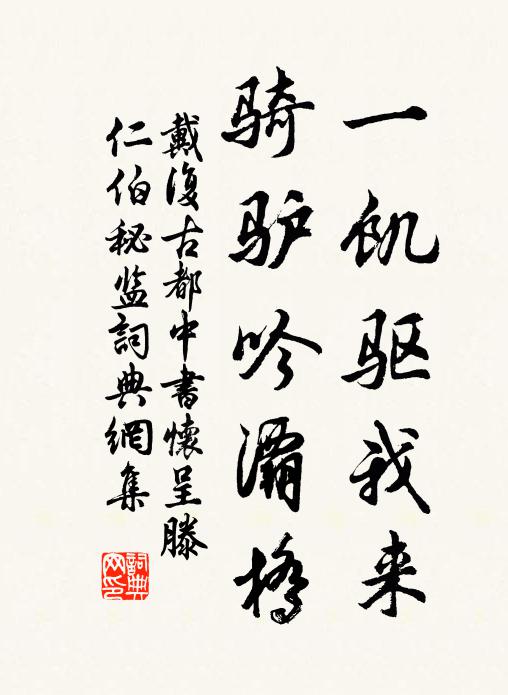 一饥驱我来
骑驴吟灞桥
戴復古都中書懷呈滕
仁伯秘监詞典網集
詞典
网印